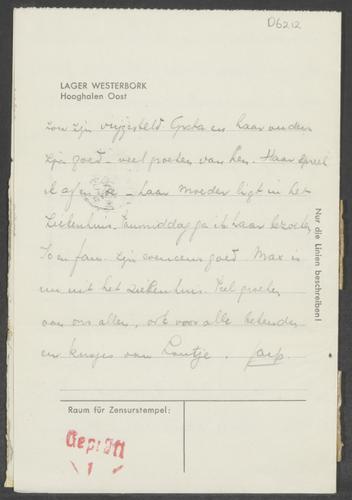 D6212
LAGER WESTERBORK
Hooghalen Oost
zou zijn vrijgesteld. Greta en haar ouders
zijn goed – veel groeten van hen. Haar spreek
ik af en toe – haar moeder ligt in het
Ziekenhuis. Vanmiddag ga ik haar bezoeken
en fam. zijn eveneens goed. Max is
nu uit het ziekenhuis. Veel groeten
van ons allen, ook voor alle bekenden
en kusjes van Loutje. Jaap.
Nur die Linien beschreiben!
Raum für Zensurstempel:
Geprüft
1